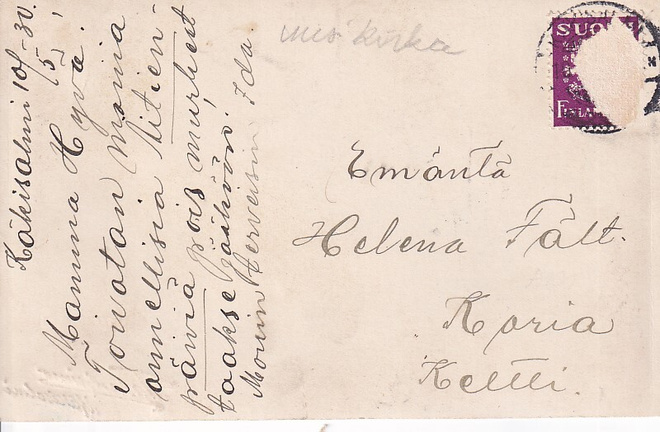 Käkisalmi 10/5 -30.
Mamma Hyvä!
Toivotan monia
onnellisia äitien-
päiviä pois murheet
taakse jääköön!
Monin Terveisin Ida.
uusi kirkka
SUO
FINLA
Emäntä
Helena Fält.
Koria
Keltti.